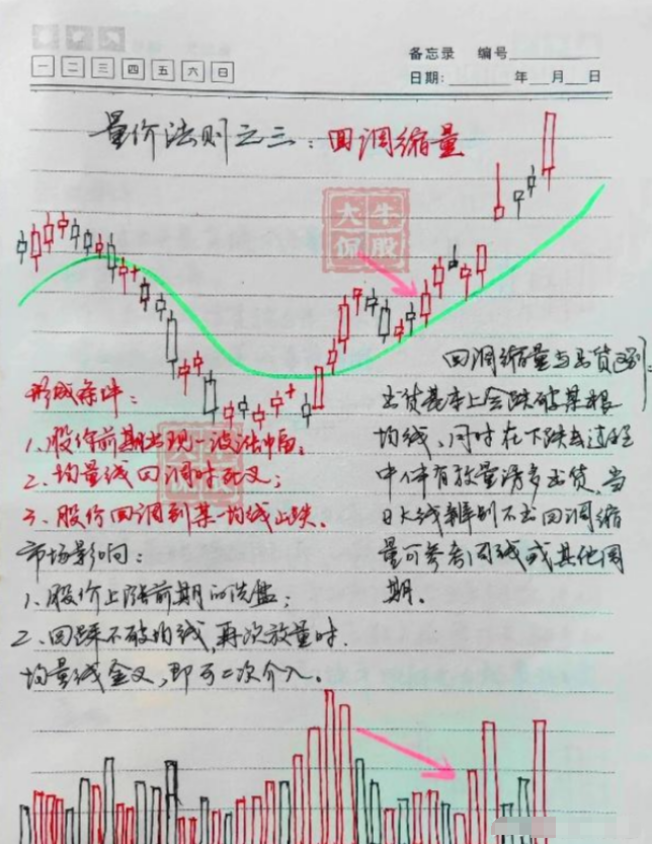 备忘录 编号
一 二 三 四 五 六 日
日期: 年 月 日
量价法则之三：回调缩量
大牛
侃股
形成条件：
1、股价前期出现一波估中阳；
2、均量线回调时死叉；
3、股价回调到某一均线止跌．
市场影响：
1、股价上涨前期的洗盘；
2、回踩不破均线，再次放量时．
均量线金叉，即可二次介入。
回调缩量与出货区别：
出货基本上会跌破某根
均线、同时在下跌去过程
中伴有放量诱多出货，当
日K线辨别不出回调缩
量可参考周线或其他周
期．